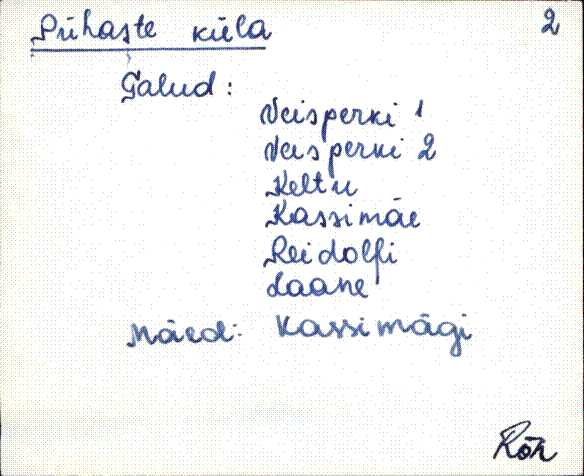 Pühaste küla 2
Talud:
Veisperki 1
Veisperki 2
Keltu
Kassimäe
Reidolfi
Laane
Mäed: Kassimägi
Rõn